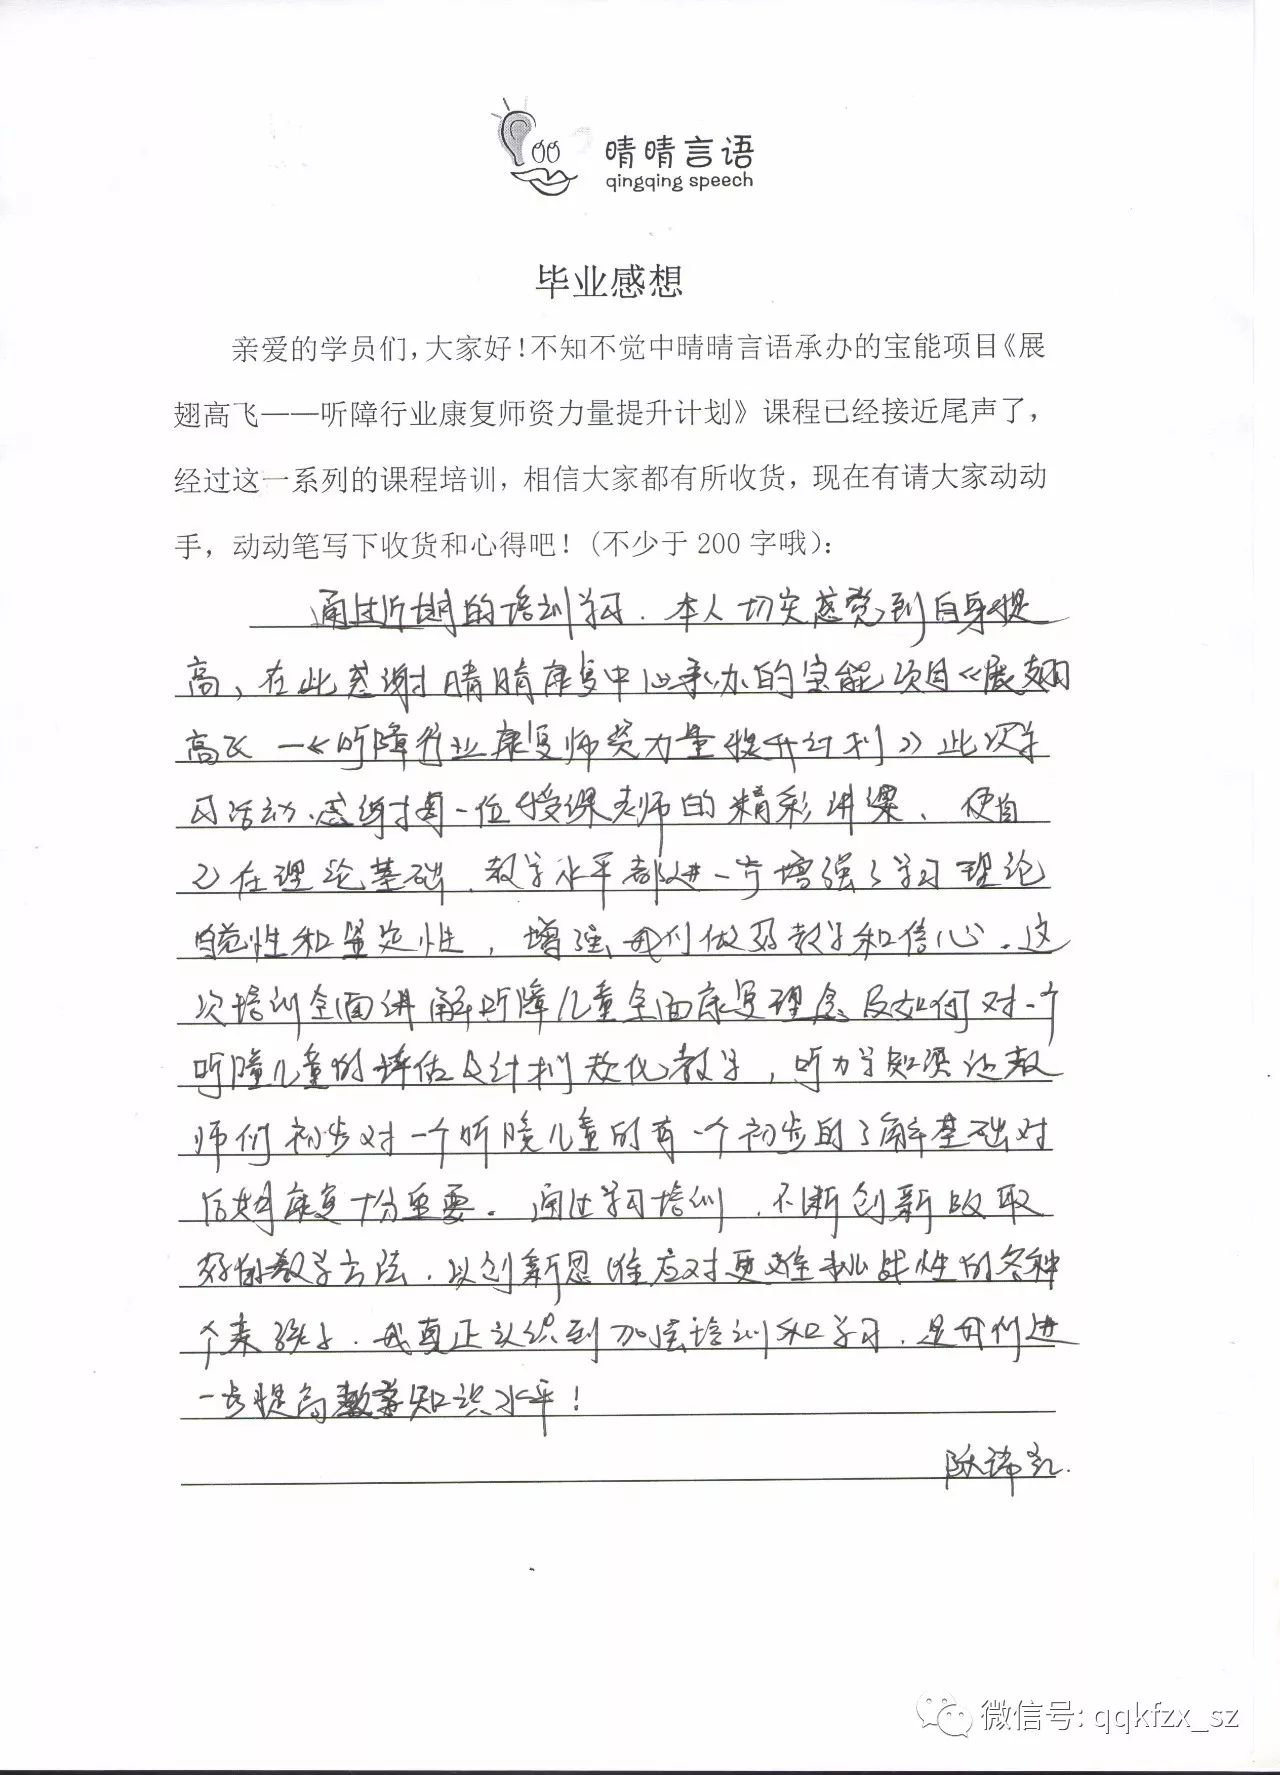 晴晴言语
qingqing speech
毕业感想
亲爱的学员们，大家好！不知不觉中晴晴言语承办的宝能项目《展
翅高飞——听障行业康复师资力量提升计划》课程已经接近尾声了，
经过这一系列的课程培训，相信大家都有所收货，现在有请大家动动
手，动动笔写下收货和心得吧！（不少于 200 字哦）：
通过近期的培训学习．本人切实感觉到自身提
高、在此感谢晴晴康复中心承办的宝能项目《展翅
高飞一《听障行业康复师资力量提升计划》此次学
习活动．感谢每一位授课老师的精彩讲课、使自
己在理论基础．教学水平都进一步增强了学习理论
性和坚定性，增强我们做好教学和信心．这
次培训全面讲解听障儿童全面康复理念及如何对一个
听障儿童的评估及计划教学，听力学知识让教
师们初步对一个听障儿童的有一个初步的了解基础对
后期康复十分重要。通过学习培训．不断创新吸取
好的教学方法．以创新思维应对更难挑战性的各种
个案孩子．我真正认识到加强培训和学习．是我们进
一步提高教学知识水平！
微信号: qqkfzx_sz